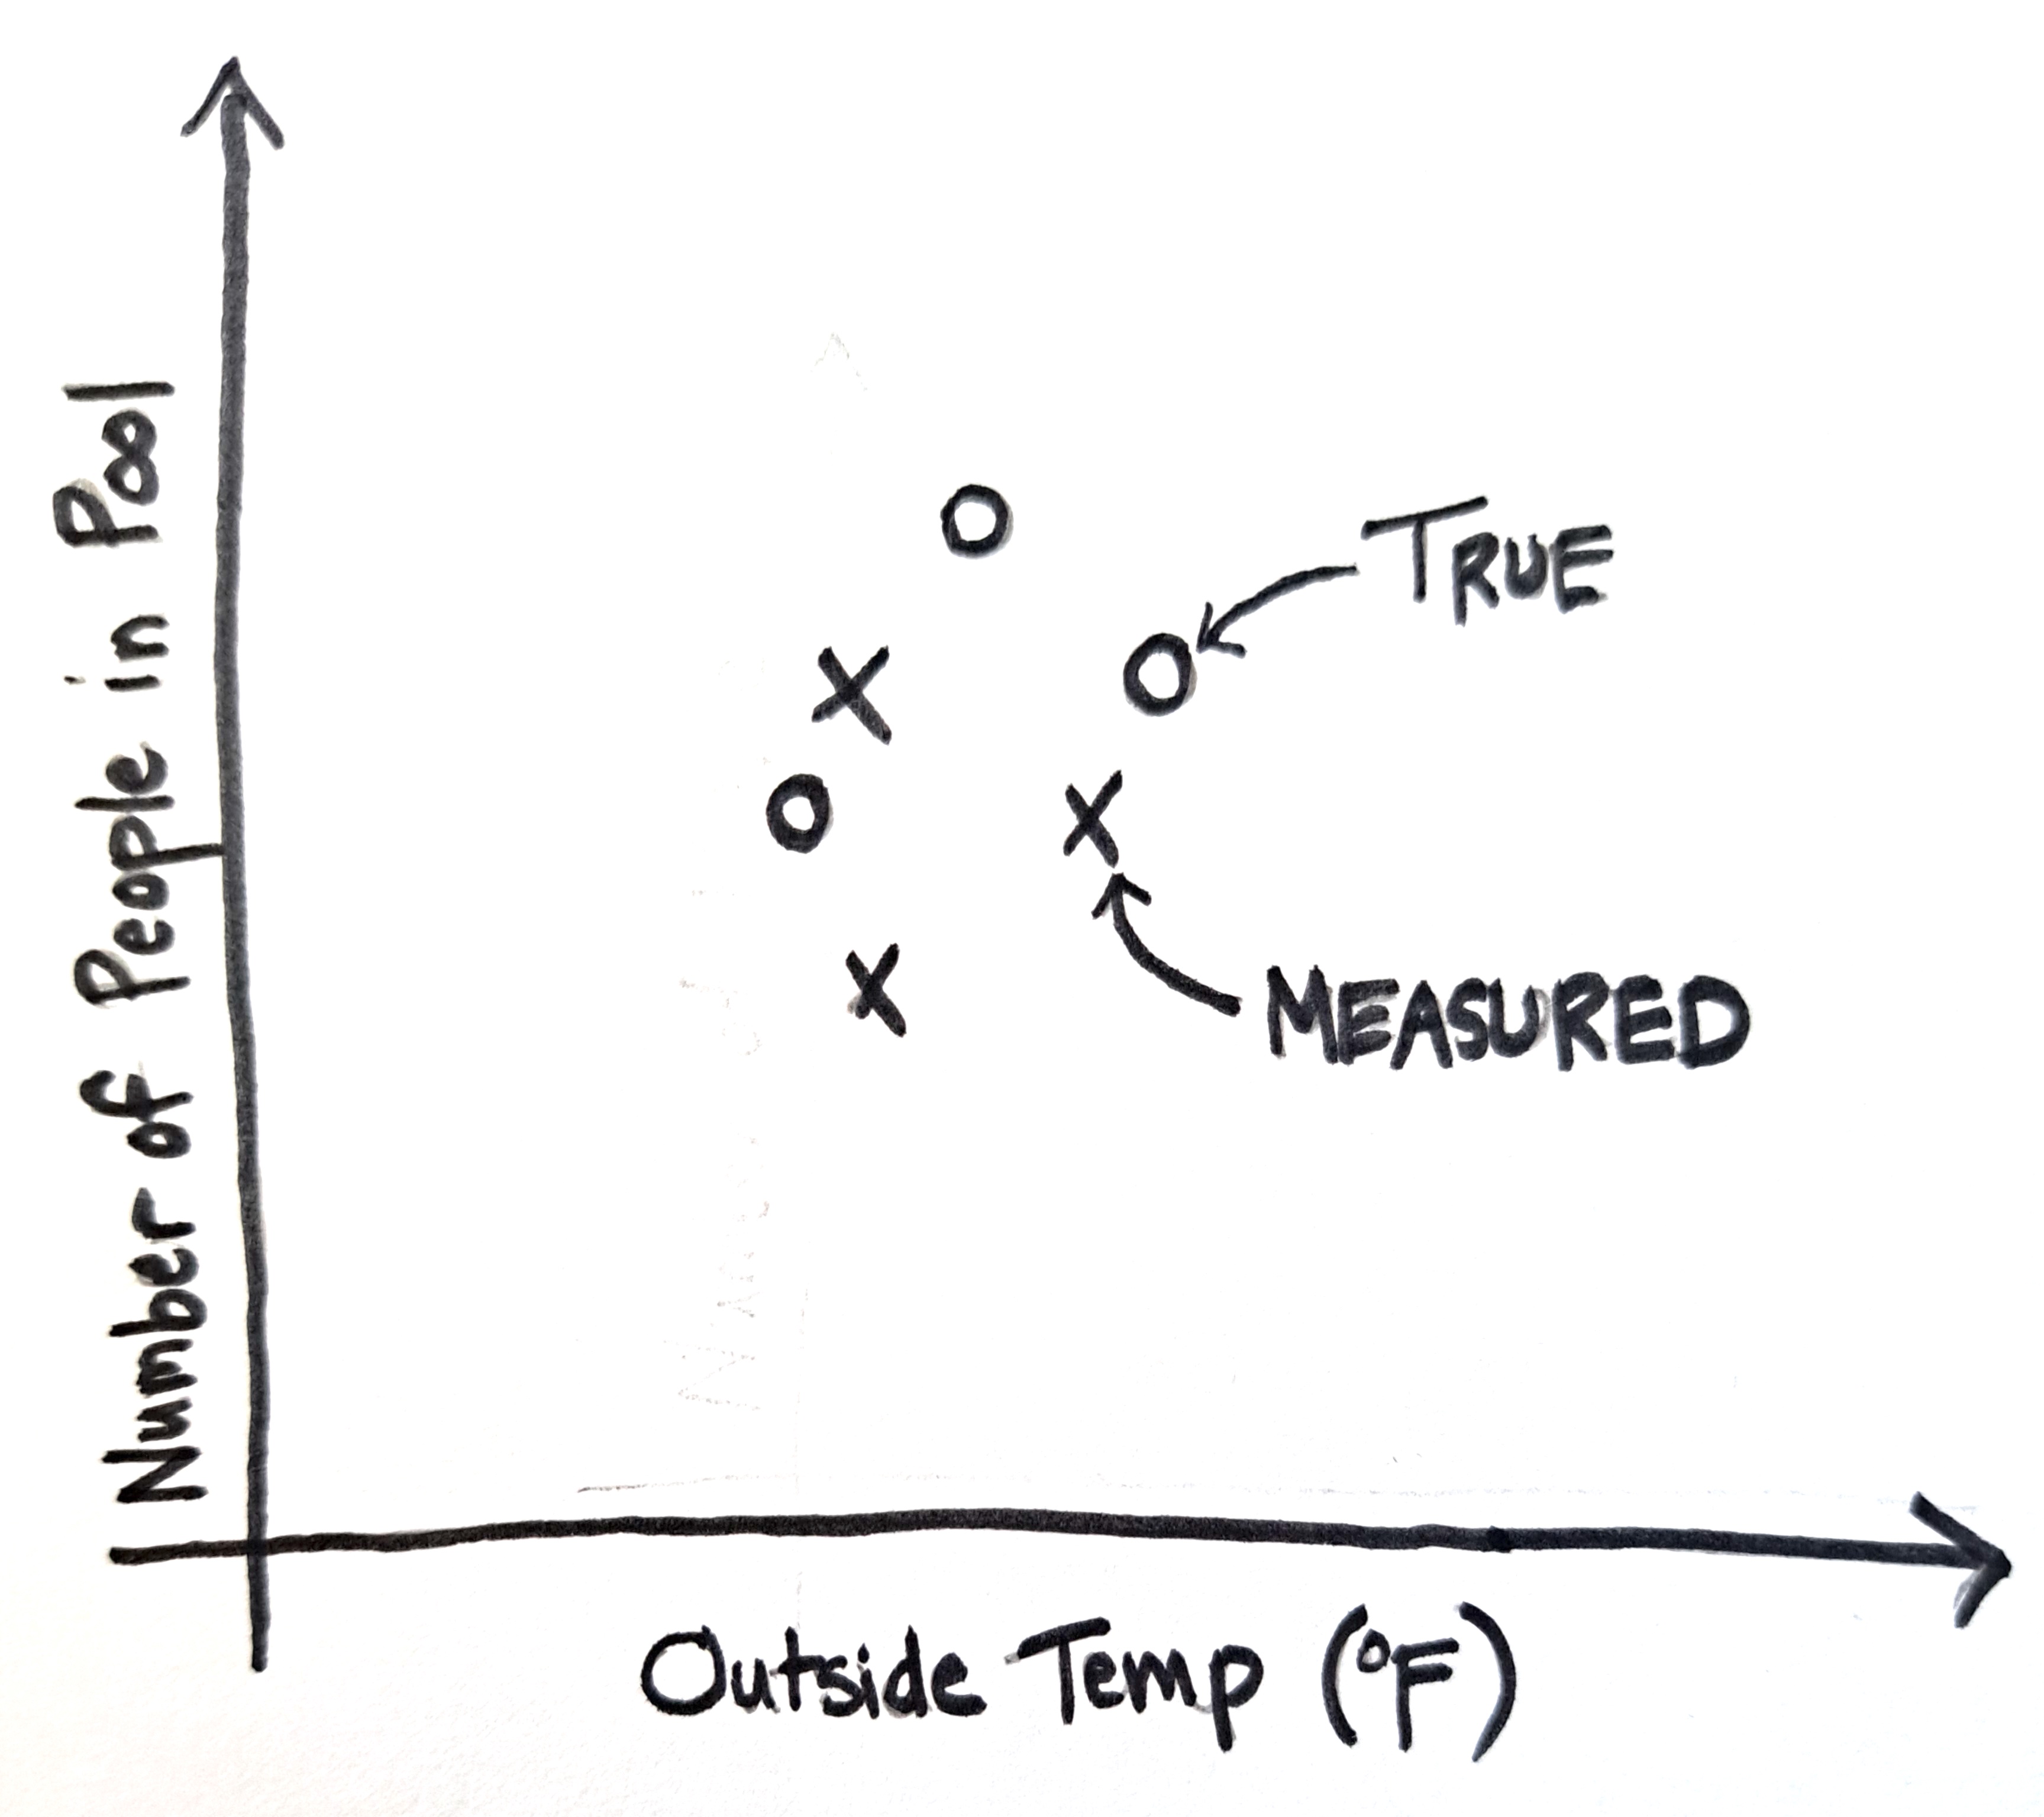 Number of People in Pool
TRUE
MEASURED
Outside Temp (°F)